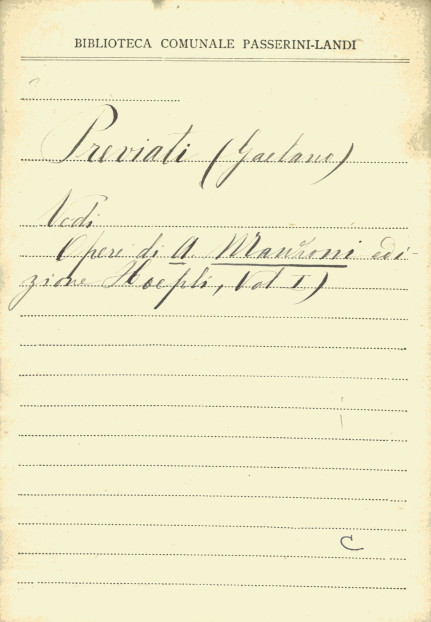 BIBLIOTECA COMUNALE PASSERINI-LANDI
Previati (Gaetano)
Vedi
Opere di A. Manzoni edi-
zione Hoepli, Vol I)
C